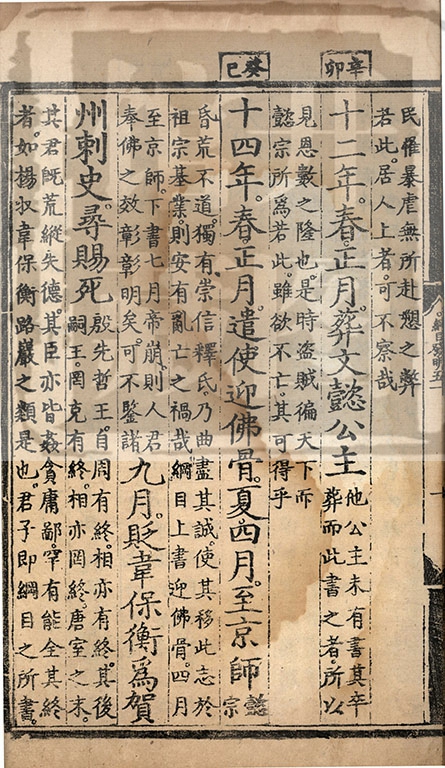 辛卯
癸巳
民罹暴虐無所赴愬之弊
若此。居人上者。可不察哉
十二年。春。正月。葬文懿公主
他公主未有書其卒
葬而此書之者。所以
見恩數之隆也。是時盜賊徧天下而
懿宗所爲若此。雖欲不亡。其可得乎
十四年。春。正月。遣使迎佛骨。夏。四月。至京師
懿
宗
昏荒不道。獨有崇信釋氏。乃曲盡其誠。使其移此志於
祖宗基業。則安有亂亡之禍哉。綱目上書迎佛骨。四月
至京師。下書七月帝崩。則人君
奉佛之效。彰彰明矣。可不鑒諸
九月。貶韋保衡爲賀
州刺史。尋賜死
殷先哲王。自周有終。相亦有終。其後
嗣王。罔克有終。相亦罔終。唐室之末。
其君旣荒縱失德。其臣亦皆姦貪庸鄙。罕有能全其終
者。如楊收韋保衡路巖之類是也。君子卽綱目之所書。